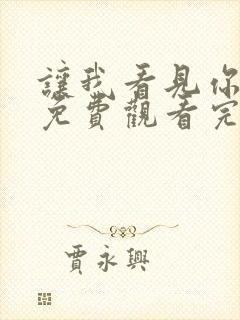 讓我看見你
免費觀看完
賈永興